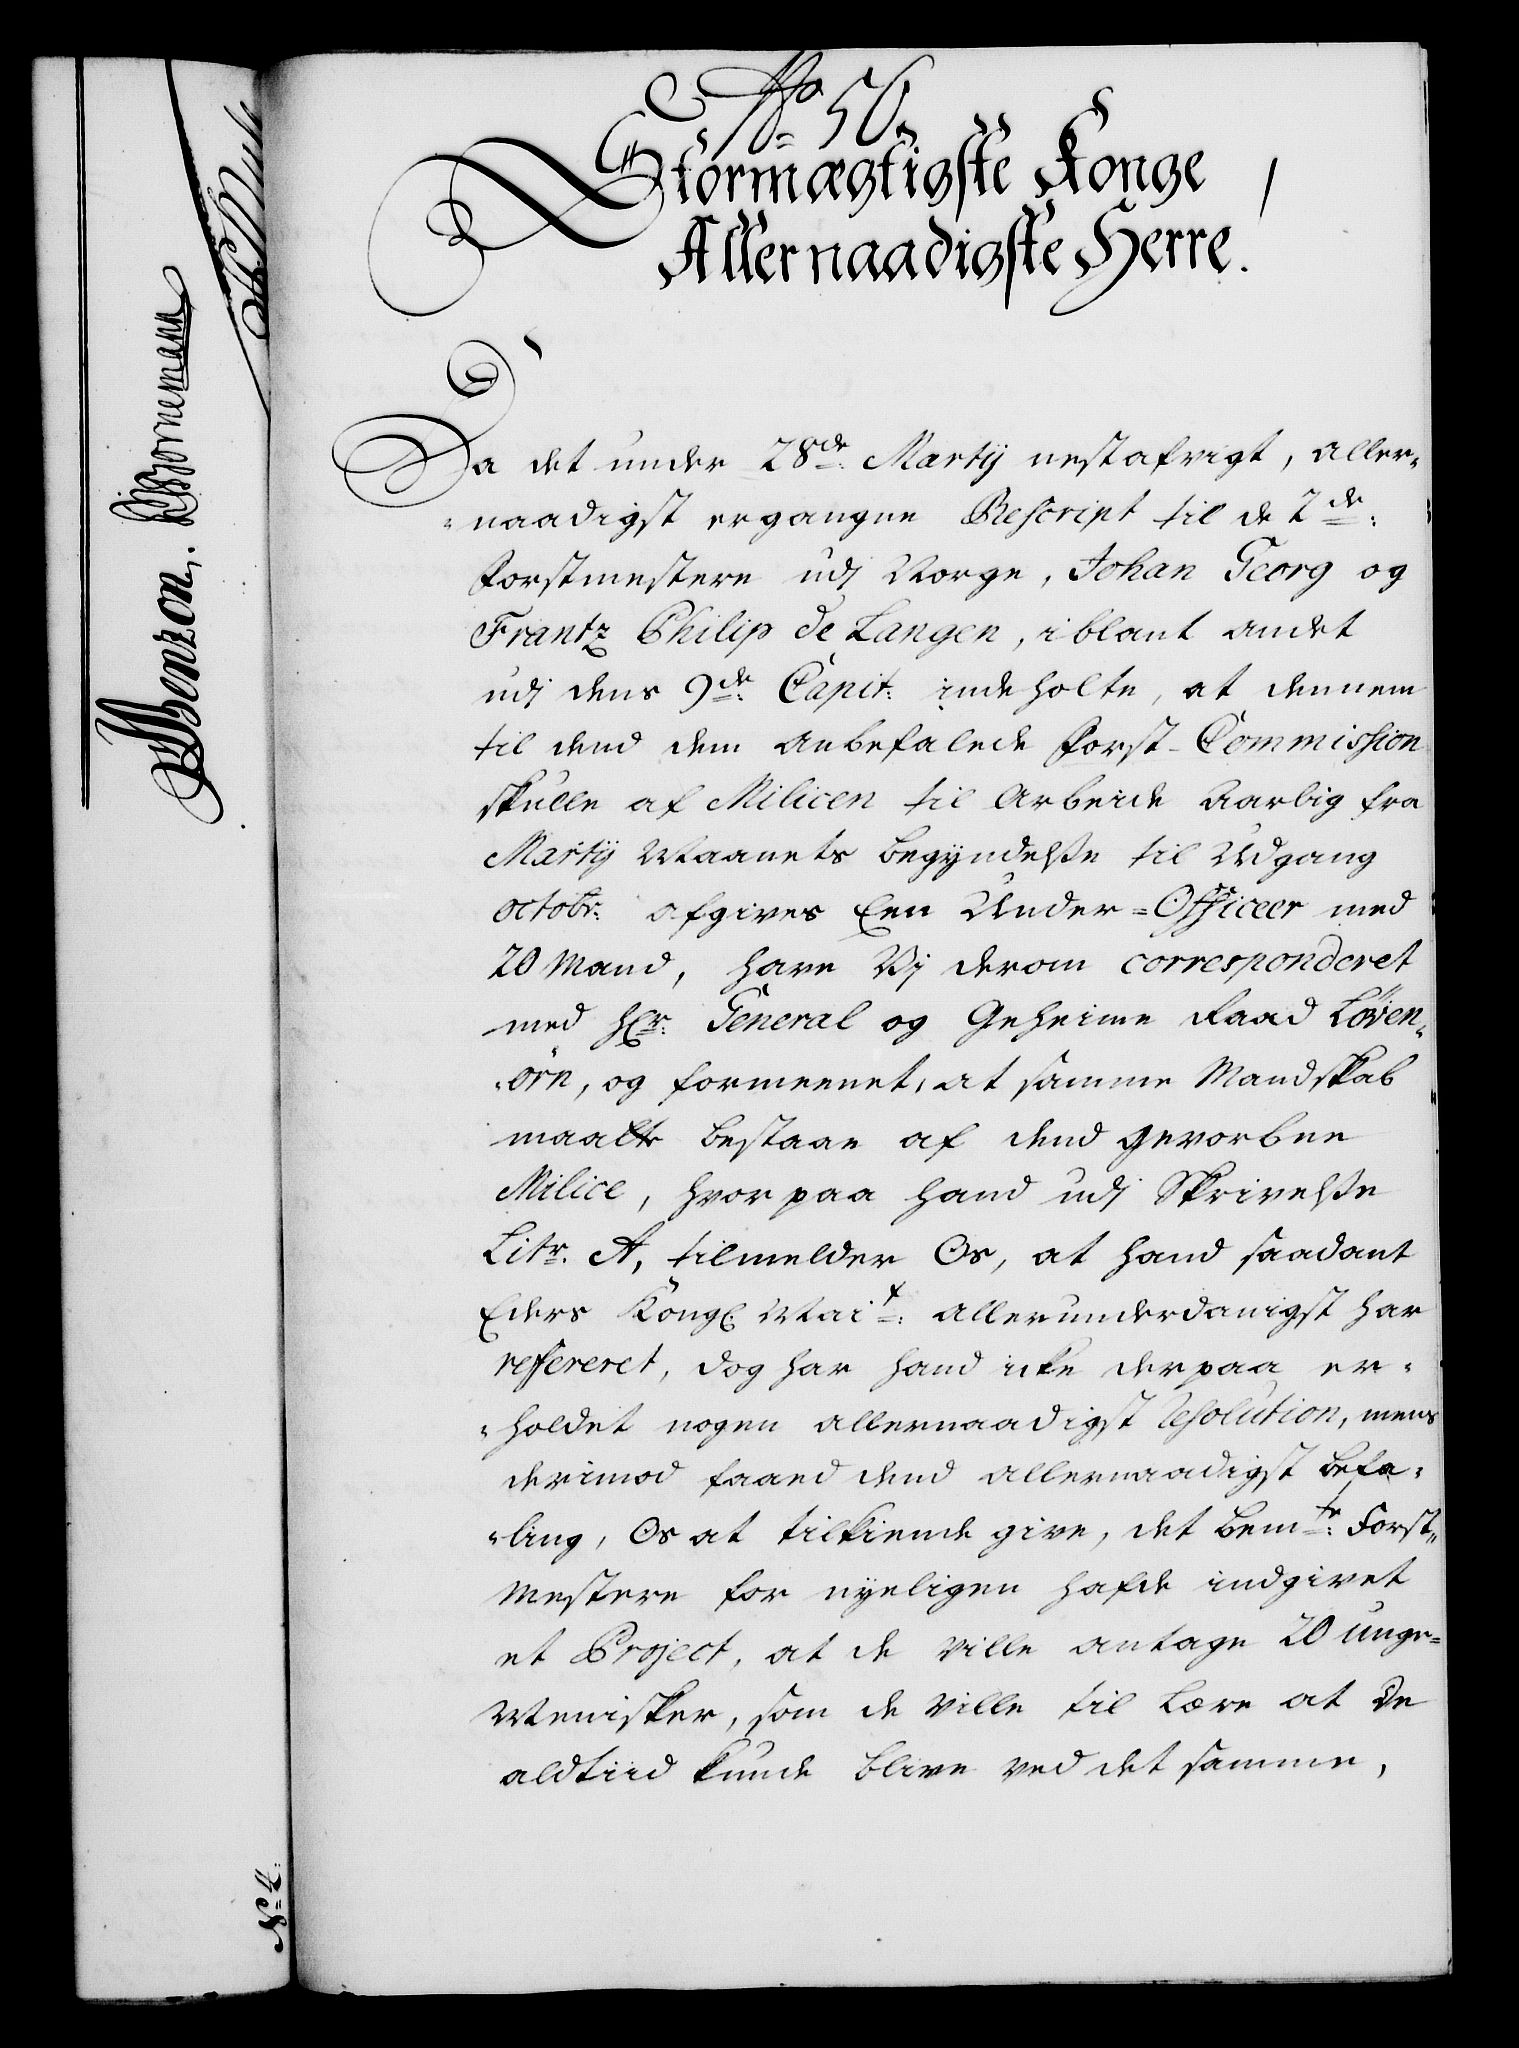 No 56
Stormægtigste Konge
Allernaadigste Herre.
Da det under 28de Martij nestafvigt, aller-
naadigst ergangne Rescript til de 2de
Forstmestere udj Norge, Johan Georg og
Frantz Philip de Langen, iblant andet
udj dens 9de Capit: indeholte, at dennem
til dend dem anbefalede Forst-Commission
skulle af Milicen til Arbeide Aarlig fra
Martij Maanets begyndelse til Udgang
octobr: afgives Een Under-Officeer med
20 Mand, have Vj derom correspondcret
med Hr: General og Geheime Raad Løven-
örn, og formeenet, at samme Mandskab
maatte bestaae af dend gevorbne
Milice, hvorpaa hand udj Skrivelse
Litr. A, tilmelder Os, at hand saadant
Eders Kongl: Mait: allerunderdanigst har
refereret, dog har hand icke derpaa er-
holdet nogen allernaadigst Resolution, mens
derimod faaed dend allernaadigst befa-
ling, Os at tilkiende give, det bemte: Forst-
Mestere for nyeligen hafde indgivet
et Project, at de ville antage 20 unge-
Menisker, som de ville til Lære at de
altiid kunde blive ved det samme,
Benzon.
Bornemann
No 4.